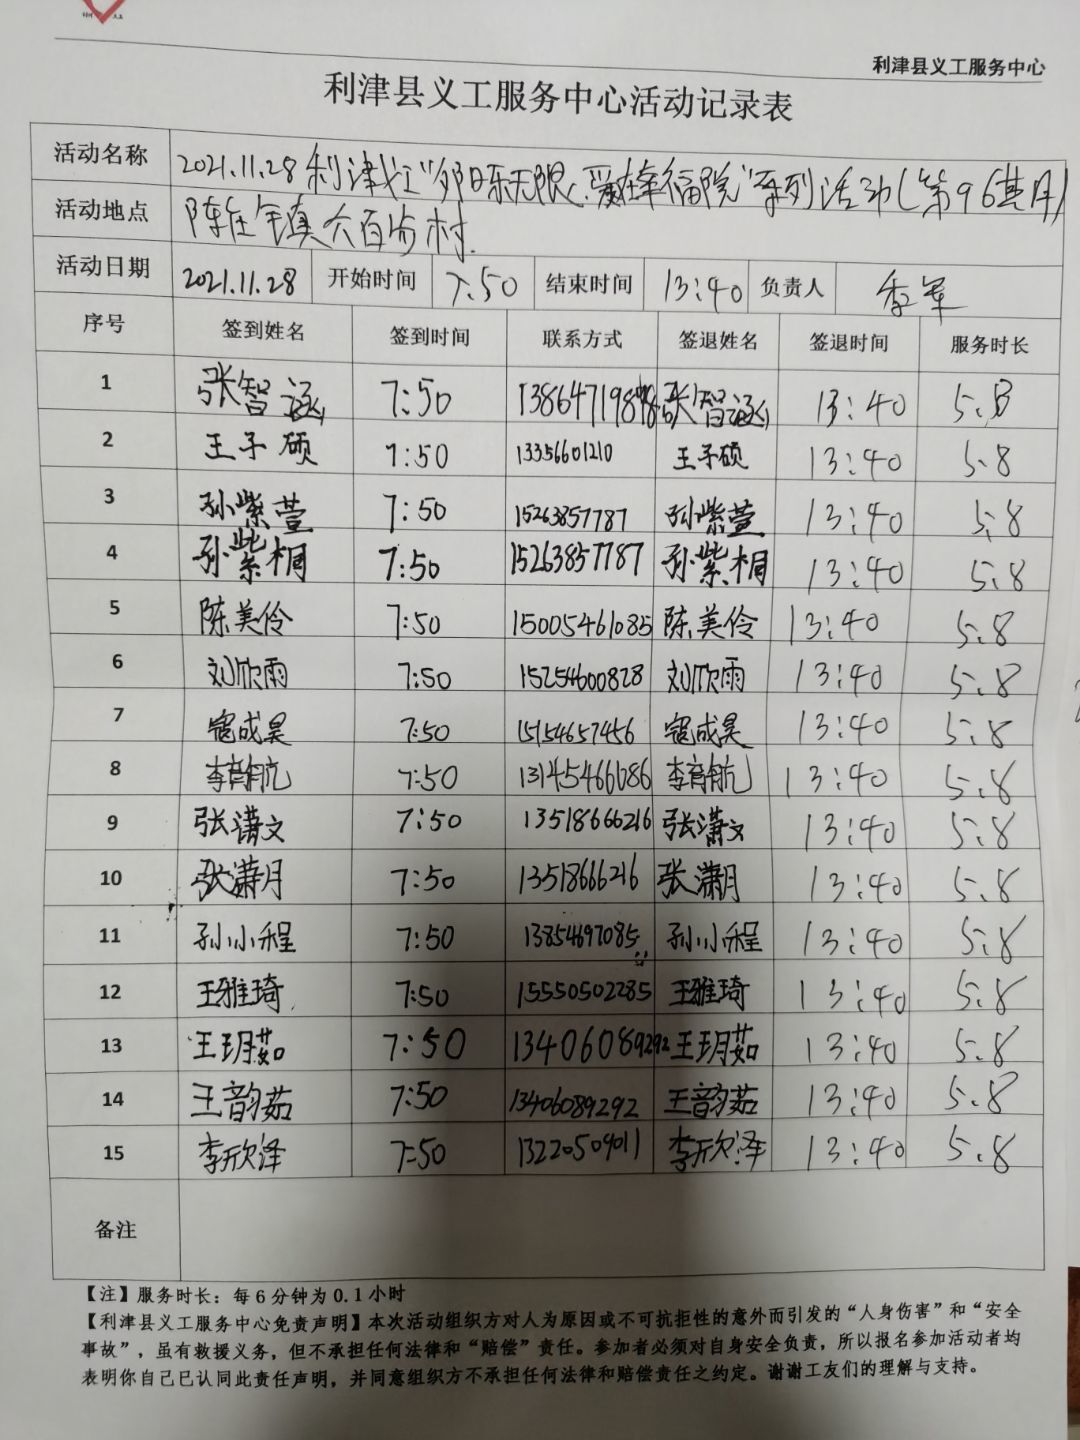 利津县义工服务中心
利津县义工服务中心活动记录表
活动名称 2021.11.28利津义工"夕阳乐无限、爱在幸福院"系列活动(第96期)
活动地点 陈庄镇六百步村.
活动日期 2021.11.28 开始时间 7:50 结束时间 13:40 负责人 军
序号 签到姓名 签到时间 联系方式 签退姓名 签退时间 服务时长
1 张智涵 7:50 张智涵 13:40 5.8
2 王子硕 7:50 13356601210 王子硕 13:40 5.8
3 孙紫萱 7:50 15263857787 孙紫萱 13:40 5.8
4 孙紫桐 7:50 15263857787 孙紫桐 13:40 5.8
5 陈美伶 7:50 15005461085 陈美伶 13:40 5.8
6 刘欣雨 7:50 15254600828 刘欣雨 13:40 5.8
7 寇成昊 7:50 15154657456 寇成昊 13:40 5.8
8 李育航 7:50 13145466686 李育航 13:40 5.8
9 张潇文 7:50 13518666216 张潇文 13:40 5.8
10 张潇月 7:50 13518666216 张潇月 13:40 5.8
11 孙小程 7:50 13854697085 孙小程 13:40 5.8
12 王雅琦 7:50 15550502285 王雅琦 13:40 5.8
13 王玥茹 7:50 13406089292 王玥茹 13:40 5.8
14 王韵茹 7:50 13406089292 王韵茹 13:40 5.8
15 李欣泽 7:50 13220509011 李欣泽 13:40 5.8
备注
【注】服务时长：每6分钟为0.1小时
【利津县义工服务中心免责声明】本次活动组织方对人为原因或不可抗拒性的意外而引发的“人身伤害”和“安全
事故”，虽有救援义务，但不承担任何法律和“赔偿”责任。参加者必须对自身安全负责，所以报名参加活动者均
表明你自己已认同此责任声明，并同意组织方不承担任何法律和赔偿责任之约定。谢谢工友们的理解与支持。